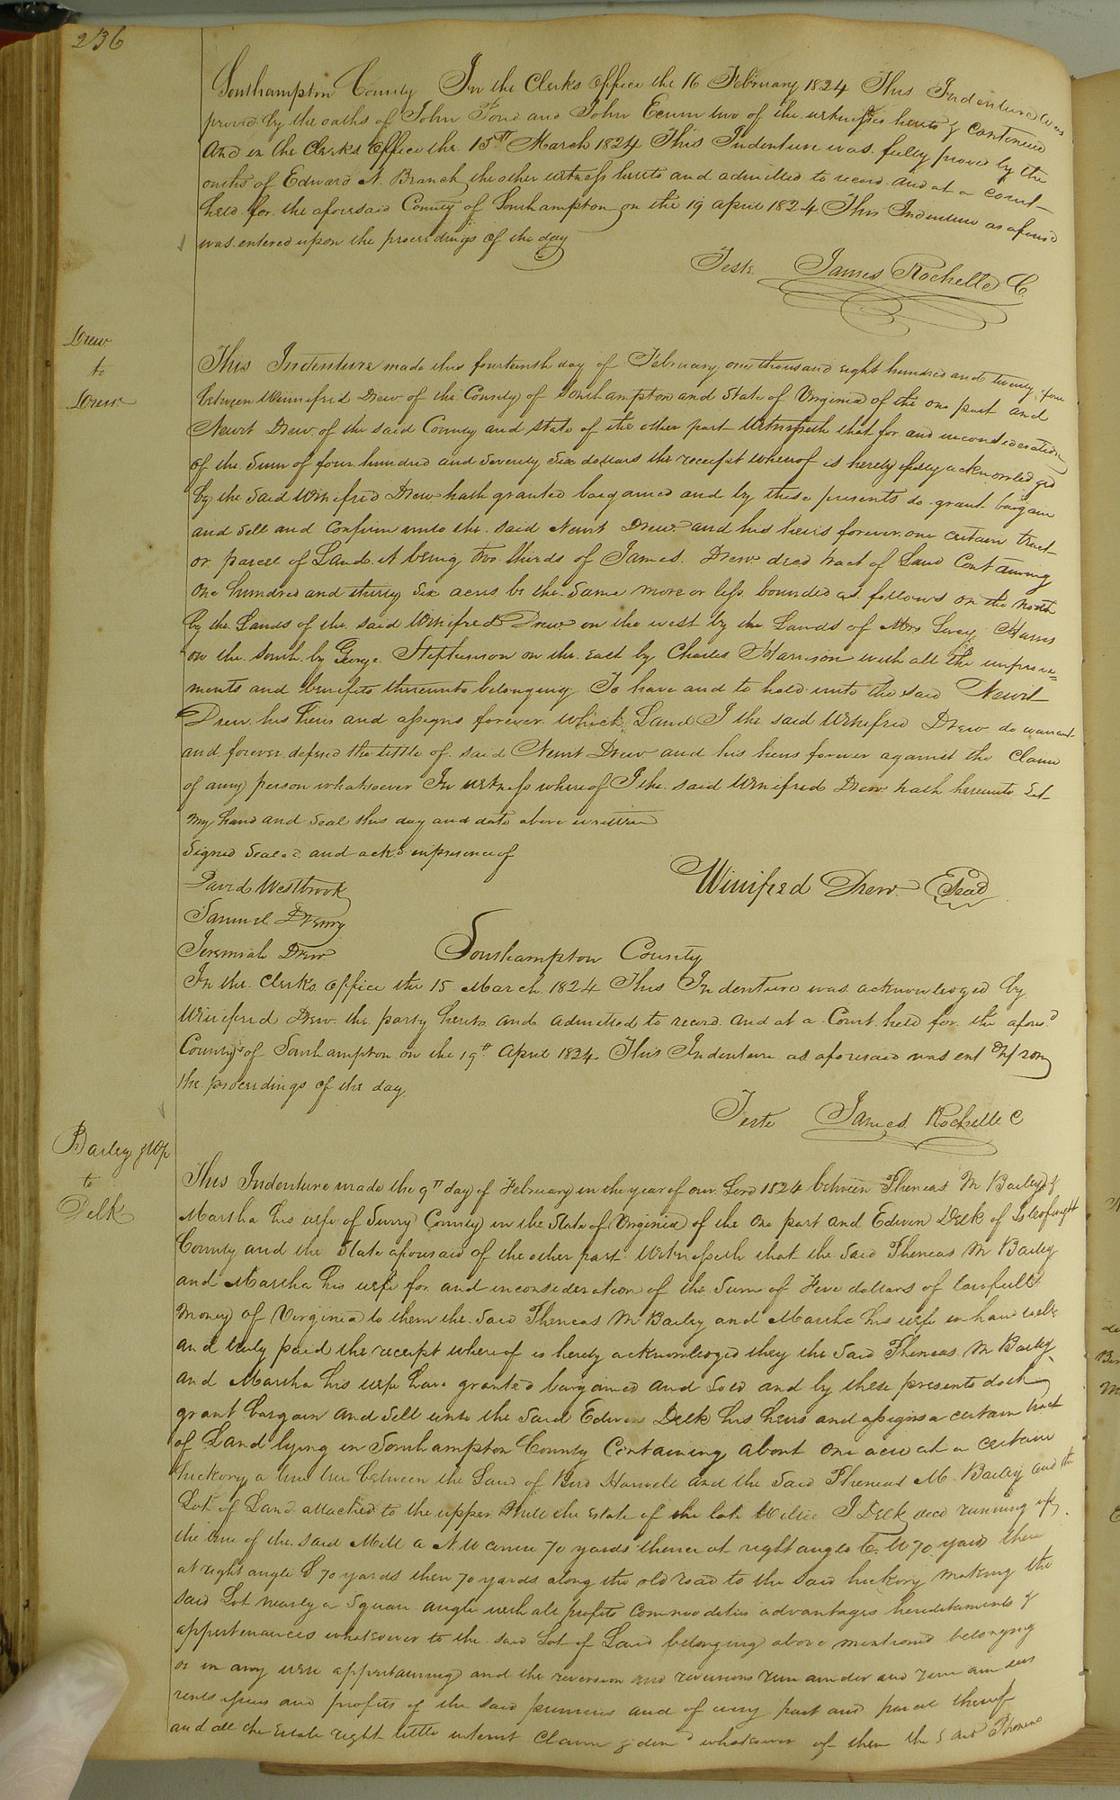 236
Southampton County In the Clerks Office the 16 February 1824 This Indenture was
proved by the oaths of John Pond and John Ecum two of the witnesses hereto & continued
And in the Clerks Office the 15th March 1824 This Indenture was fully proved by the
oaths of Edward A. Branch the other witness hereto and admitted to record and at a court
held for the aforesaid County of Southampton on the 19 April 1824 This Indenture as afores'd
was entered upon the proceedings of the day
Teste James Rochelle C
Drew
to
Drew
This Indenture made this fourteenth day of February one thousand eight hundred and twenty four
between Winnefred Drew of the County of Southampton and State of Virginia of the one part and
Newit Drew of the said County and state of the other part Witnesseth that for and inconsideration
of the Sum of four hundred and Seventy Six dollars the receipt whereof is hereby fully acknowledged
by the said Winifred Drew hath granted bargained and by these presents do grant bargain
and Sell and Confirm unto the said Newit Drew and his heirs forever one certain tract
or parcel of Land it being two thirds of James Drew decd tract of Land Containing
One hundred and thirty Six acres be the Same more or less bounded as follows on the North
by the Lands of the said Winifred Drew on the west by the Lands of Mrs Lucy Harris
on the South by George Stephenson on the East by Charles Harrison with all the improve=
ments and benefits thereunto belonging To have and to hold unto the said Newit
Drew his heirs and assigns forever which Land I the said Winifred Drew do warrant
and forever defend the tittle of said Newit Drew and his heirs forever against the Claim
of any person whatsoever In witness whereof I the said Winifred Drew hath hereunto Set
my hand and Seal this day and date above written
Signed Seal.d and ackd inpresence of
David Westbrook
Winifred Drew Seal
Samuel Drewry
Jeremiah Drew
Southampton County
In the Clerks Office the 15 March 1824 This Indenture was acknowledged by
Winefred Drew the party hereto and admitted to record and at a Court held for the afores.d
County of Southampton on the 19th April 1824 This Indenture as aforesaid was ent'd upon
the proceedings of the day.
Teste James Rochelle C
Bailey & Wife
to
Delk
This Indenture made the 9th day of February in the year of our Lord 1824 between Theneas M Bailey &
Martha his wife of Surry County in the State of Virginia of the One part and Edwin Delk of Isle of wight
County and the State aforesaid of the other part Witnesseth that the Said Theneas M Bailey
and Martha his wife for and inconsideration of the Sum of Five dollars of lawfull
Money of Virginia to them the Said Theneas M Bailey and Martha his wife in han well
and truly paid the receipt whereof is hereby acknowledged they the Said Theneas M Bailey
and Martha his wife have granted bargained and Sold and by these presents doth
grant bargain and Sell unto the Said Edwin Delk his heirs and assigns a certain tract
of Land lying in Southampton County Containing about one acre at a certain
hickory a line tree between the Land of Bird Harwell and the Said Theneas M. Bailey and the
Lot of Land attached to the upper Mill the Estate of the late Willie J Delk decd running up
the line of the Said Mill a N.W course 70 yards thence at right angle E. W 70 yards then
at right angle S 70 yards then 70 yards along the old road to the Said hickory making the
said Lot nearly a Square angle with all profits Commodities advantages hereditaments &
appertenances whatsoever to the said Lot of Land belonging above mentioned belonging
or in any wise appertaining and the reversion and reversions remainder and remainders
rents issues and profits of the said premises and of every part and parcel thereof
and all the Estate right tittle interest Claim & demd whatsoever of them the Said Theneas